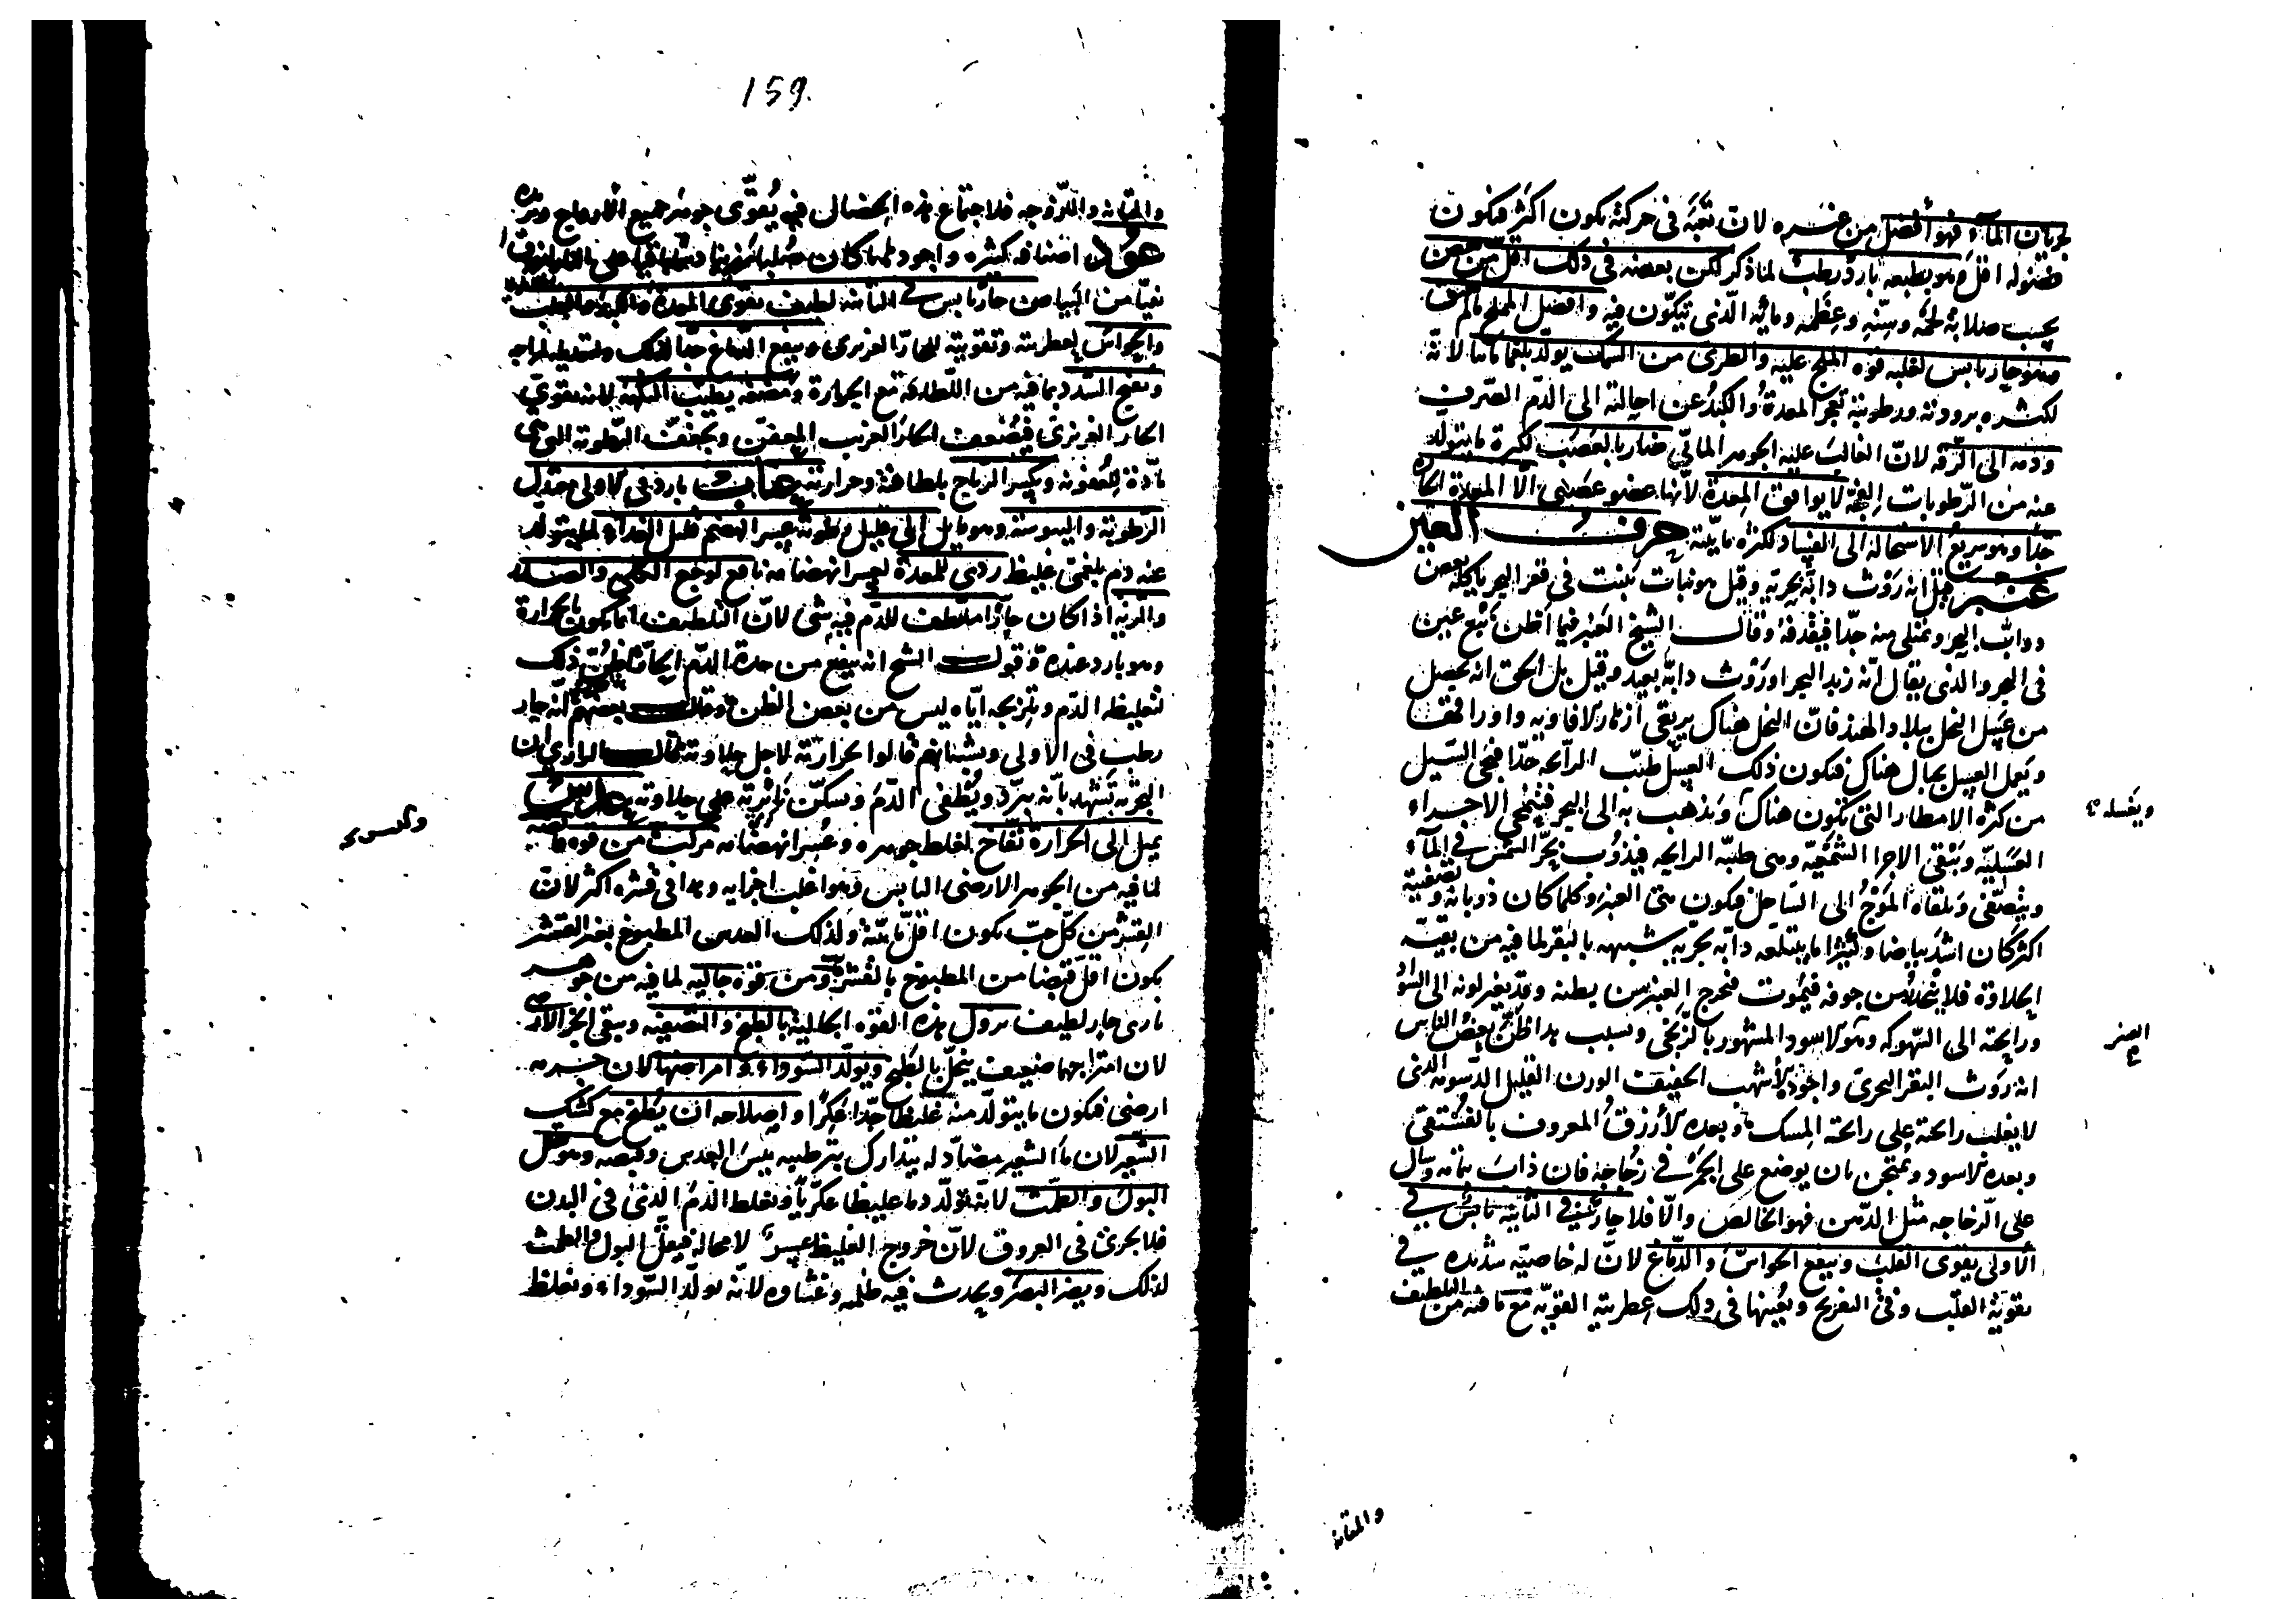 لجريان الماء فهو أفضل من غيره لان تعبه في حركته يكون اكثر فتكون
فضوله اقل وهو بطبعه بارد رطب لما ذكر لكن بعضه في ذلك اقل من بعض
بحسب صلابة لحمه وسنه وعظمه ومائه الذي يتكون فيه وافضل المملح ما لم يعتق
وهو حار يابس لغلبة قوة الملح عليه والطري من السمك يولد بلغما مائيا لانه
لكثرة برودته ورطوبته تعجز المعدة والكبد عن احالته الى الدم الصرف
ودمه الى الرقة لان الغالب عليه الجوهر المائي ضار بالعصب لكثرة ما يتولد
عنه من الرطوبات الفجة لا يوافق المعدة لانها عضو عصبي الا المعدة الحارة
جدا وهو سريع الاستحالة الى الفساد لكثرة مائيته حرف العين
عنبر قيل انه روث دابة بحرية وقيل هو نبات ينبت في قعر البحر يأكله بعض
دواب البحر وتمتلي منه جدا فيقذفه وقال الشيخ العنبر فيما أظن نبع عين
في البحر والذي يقال انه زبد البحر او روث دابة بعيد وقيل بل الحق انه يحصل
من عسل النحل ببلاد الهند فان النحل هناك يرتقي ازهار الافاويه واوراقها
ويعمل العسل بجبال هناك فيكون ذلك العسل طيب الرائحة جدا فيجي السيل
من كثرة الامطار التي تكون هناك ويذهب به الى البحر فينمحي الاجزاء
ويغسله
العسلية وتبقى الاجزا الشمعية وهي طيبة الرايحة فيذوب بحر الشمس في الماء
ويتصفى ويلقاه الموج الى الساحل فيكون متى العنبر وكلما كان ذوبانه وتصفيته
اكثر كان اشد بياضا وكثيرا ما يبتلعه دابة بحرية شبيهة بالبقر لما فيه من بقية
الحلاوة فلا ينحل من جوفه فيموت فيخرج العنبر من بطنه وقد يغير لونه الى السواد
ورايحته الى السهوكة وهو الاسود المشهور بالزنجي وبسبب هذا ظن بعض الناس
العنبر
انه روث البقر البحري واجوده الأشهب الخفيف الوزن القليل الدسومة الذي
لا يغلب رائحته على رائحة المسك وبعده الأزرق المعروف بالفستقي
وبعده الاسود ويمتحن بان يوضع على الجمر في زجاجة فان ذاب بتمامه وسال
على الزجاجة مثل الدهن فهو الخالص والا فلا حار في الثانية يابس في
الأولى يقوي القلب وينفع الحواس والدماغ لان له خاصية شديدة في
تقوية القلب وفي التفريح ويعينها في ذلك عطريته القوية مع ما فيه من التلطيف
والمتانة
159
والمتانة واللزوجة فلاجتماع هذه الخصال فيه يقوي جوهر جميع الارواح
عود اصنافه كثيرة واجودها ما كان صلبا
نقيا من البياض حار يابس في الثانية لطيف يقوي المعدة والكبد والقلب
والحواس لعطريته وتقويته للحار الغريزي وينفع الدماغ جدا لذلك
ويفتح السدد بما فيه من اللطافة مع الحرارة ومضغه يطيب النكهة لانه يقوي
الحار الغريزي فيضعف الحار الغريب المعفن ويجفف الرطوبة التي هي
مادة للعفونة ويكسر الرياح بلطافته وحرارته عناب بارد في الاولى معتدل
الرطوبة واليبوسة وهو مايل الى قليل رطوبة عسر الهضم قليل الغذاء لما يتولد
عنه دم بلغمي غليظ ردي للمعدة لعسر انهضامه نافع لوجع الكلى والصدر
والرية اذا كان حارا ملطف للدم فيه شى لان التلطيف انما يكون بالحرارة
وهو بارد عنده وقول الشيخ انه ينفع من حدة الدم الحار فأظن ذلك
لتغليظه الدم وتلزيجه اياه ليس من بعض الظن وقال بعضهم انه حار
رطب في الاولى ويشبه انهم قالوا بحرارته لاجل حلاوته قال الرازي ان
التجربة تشهد بأنه يبرد ويطفى الدم ويسكن ثائرته على حلاوته عدس
واليبوسة
يميل الى الحرارة نفاخ لغلظ جوهره وعسر انهضامه مركب من قوة قابضة
لما فيه من الجوهر الارضي اليابس وهو اغلب اجزايه وهذا في قشره اكثر لان
القشر من كل حب يكون اقل مائية ولذلك العدس المطبوخ بغير القشر
يكون اقل قبضا من المطبوخ بالقشر ومن قوة جالية لما فيه من جوهر
ناري حار لطيف تزول هذه القوة الجالية بالطبخ والتصفية ويبقى الجزء الارضي
لان امتزاجهما ضعيف ينحل بالطبخ ويولد السوداء وامراضها لان جرمه
ارضي فيكون ما يتولد منه غليظا جدا عكرا واصلاحه ان يطبخ مع كشك
الشعير لان ماء الشعير مضاد له يتدارك بترطيبه يبس العدس وقبضه وهو يقل
البول والطمث لانه يولد دما غليظا عكريا ويغلظ الدم الذي في البدن
فلا يجري في العروق لان خروج الغليظ عسر لا محالة فيقل البول والطمث
لذلك ويضر البصر ويحدث فيه ظلمة وغشاوة لانه يولد السوداء ويغلظ